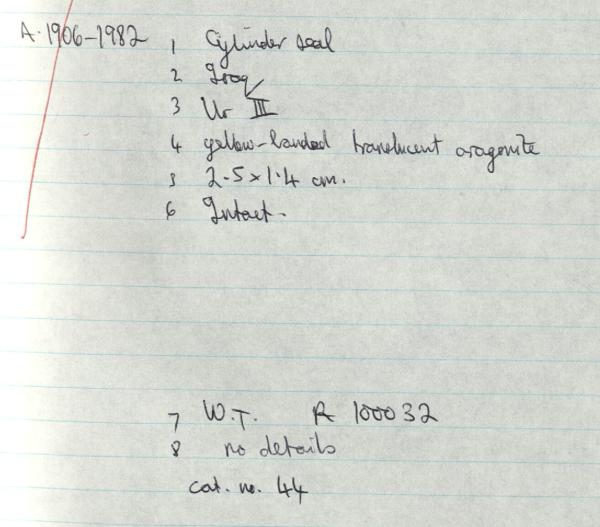 A.1906-1982 1 Cylinder seal
2 Iraq
3 Ur III
4 yellow-banded translucent aragonite
5 2.5 x 1.4 cm.
6 Intact.
7 W.T. R 100032
8 no details
cat. no. 44